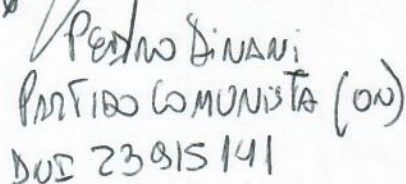 Pedro Dinani
PARTIDO COMUNISTA (ON)
DUI 23915141